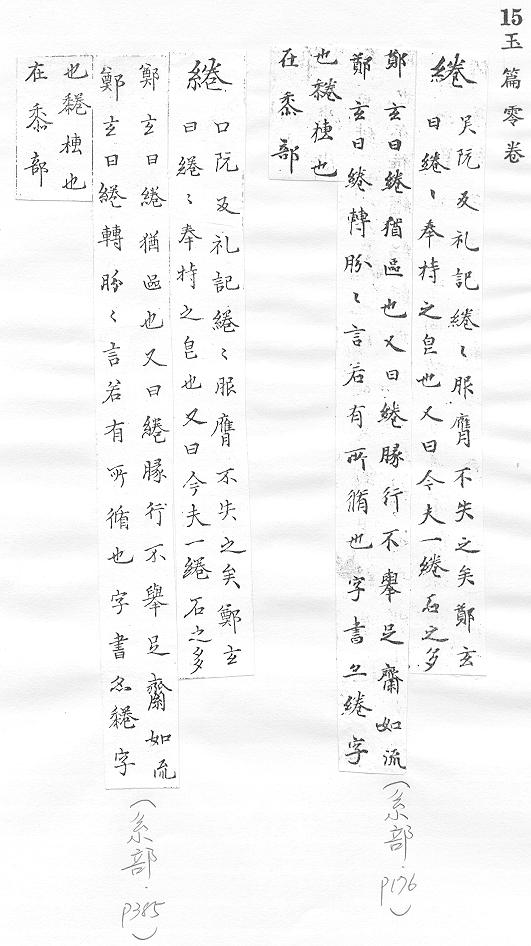 15玉篇零卷
綣 口阮反礼記綣〻服膺不失之矣鄭玄
曰綣〻奉持之皃也又曰今夫一綣石之多
鄭玄曰綣猶區也又曰綣豚行不舉足齊如流
鄭玄曰綣轉豚〻言若有所循也字書亦綣字
也䅚種也
在黍部
(糸部.P176)
綣 口阮反礼記綣〻服膺不失之矣鄭玄
曰綣〻奉持之皃也又曰今夫一綣石之多
鄭玄曰綣猶區也又曰綣豚行不舉足齊如流
鄭玄曰綣轉豚〻言若有所循也字書亦䅚字
也䅚種也
在黍部
(糸部.P385)